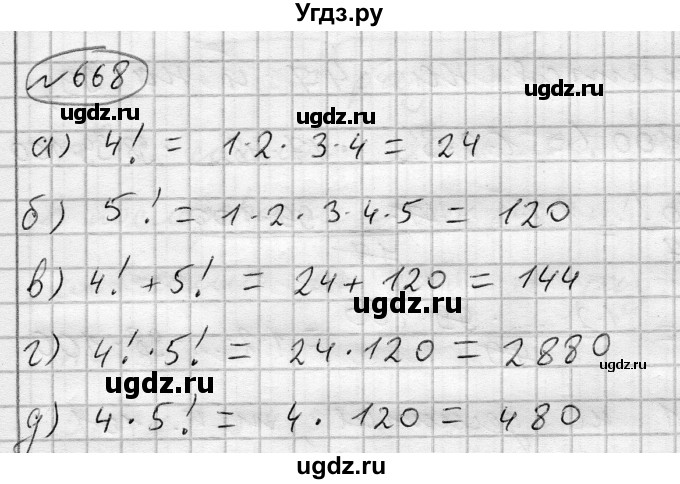 Угдз.ру
№668
ugdz.ru ugdz.ru ugdz.ru
а) 4! = 1·2·3·4 = 24
ugdz.ru
б) 5! = 1·2·3·4·5 = 120
в) 4! + 5! = 24 + 120 = 144
ugdz.ru
г) 4! · 5! = 24 · 120 = 2880
ugdz.ru
ugdz.ru
д) 4 · 5! = 4 · 120 = 480
ugdz.ru